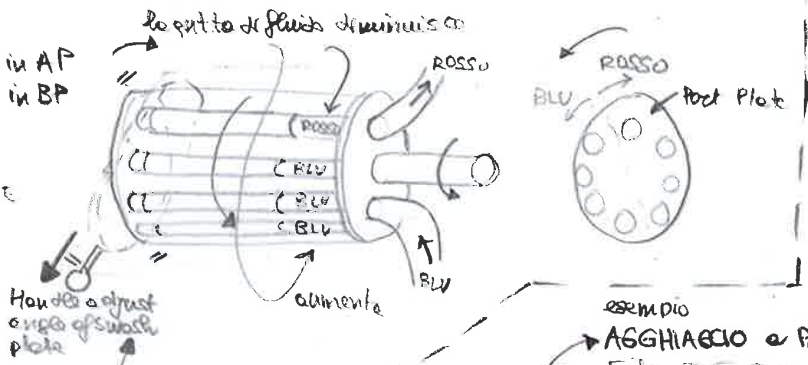 la qtità di fluido diminuisce
in AP
in BP
ROSSO
ROSSO
BLU
BLU
BLU
BLU
aumenta
Handle adjust
angle of swash
plate
ROSSO
BLU
Port Plate
esempio
AGGHIACCIO a P